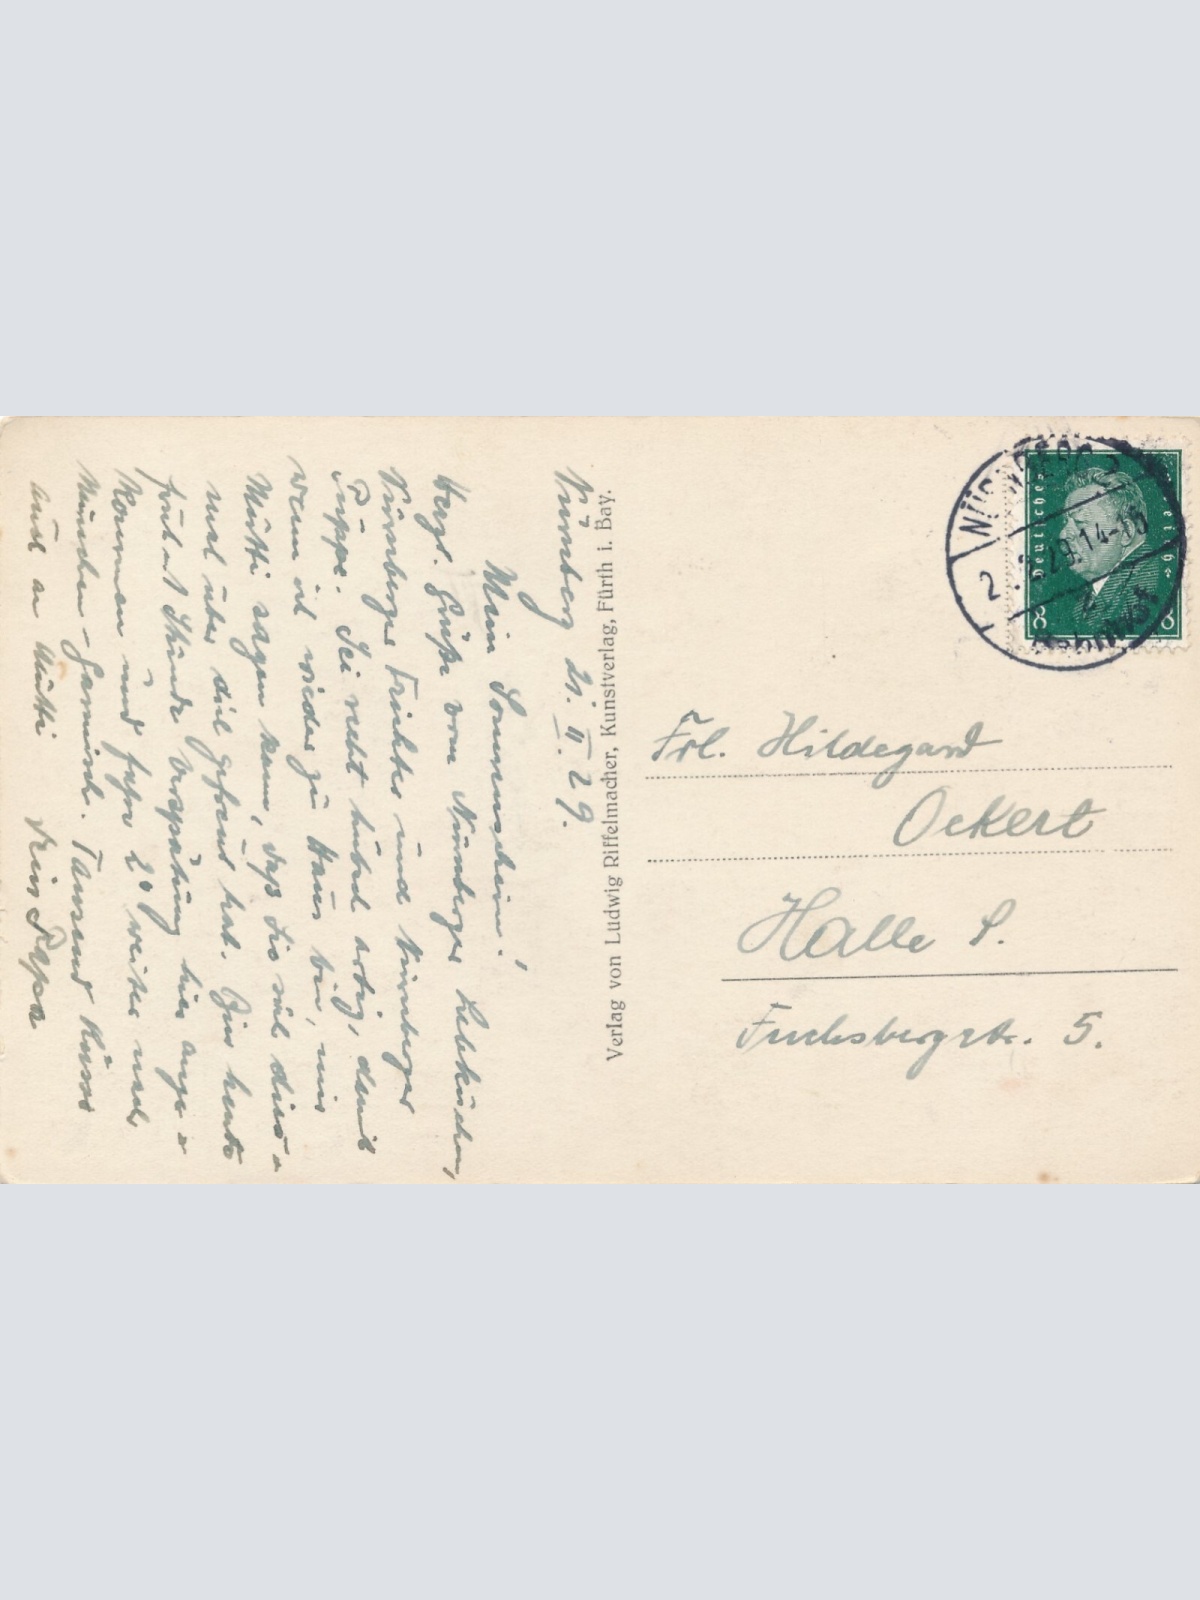 Nürnberg 21. II. 29.
Mein Sonnenschein!
Herzl. Grüße vom Nürnberger Lebkuchen,
Nürnberger Trichter und Nürnberger
Puppe. Sei recht hübsch artig, damit
wenn ich wieder zu Haus bin, mir
Mutti sagen kann, daß sie sich dies-
mal über dich gefreut hat. Bin heute
Stunde Verspätung hier ange-
kommen und fahre 20 weiter nach
München-Garmisch. Tausend Küsse
auch an Mutti Dein Papa
Verlag von Ludwig Riffelmacher, Kunstverlag, Fürth i. Bay.
NÜRNBERG 2
2 . 2. 29. 14-15
Deutsches Reich
8 8
Frl. Hildegard
Ockert
Halle S.
Fuchsbergstr. 5.